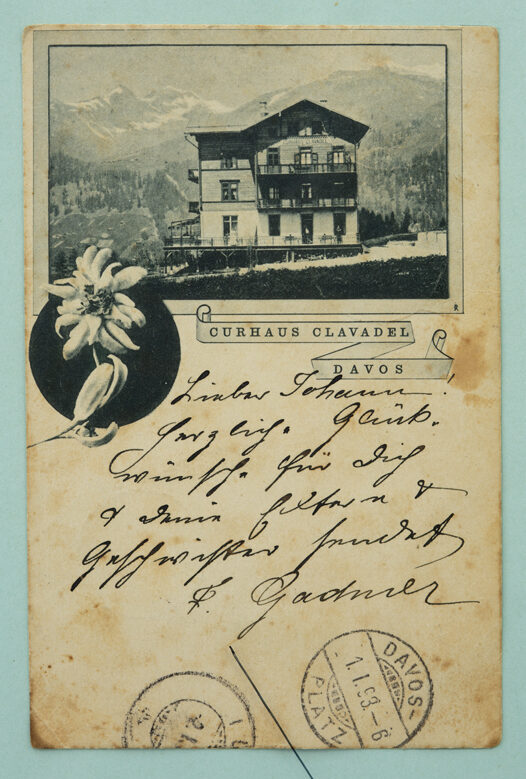 CURHAUS CLAVADEL
DAVOS
Lieber Johann!
Herzlich. Glück-
wünsch. für Dich
& deine Eltern &
Geschwister sendet
F. Gadmer
DAVOS-
1.I.98.-6
PLATZ